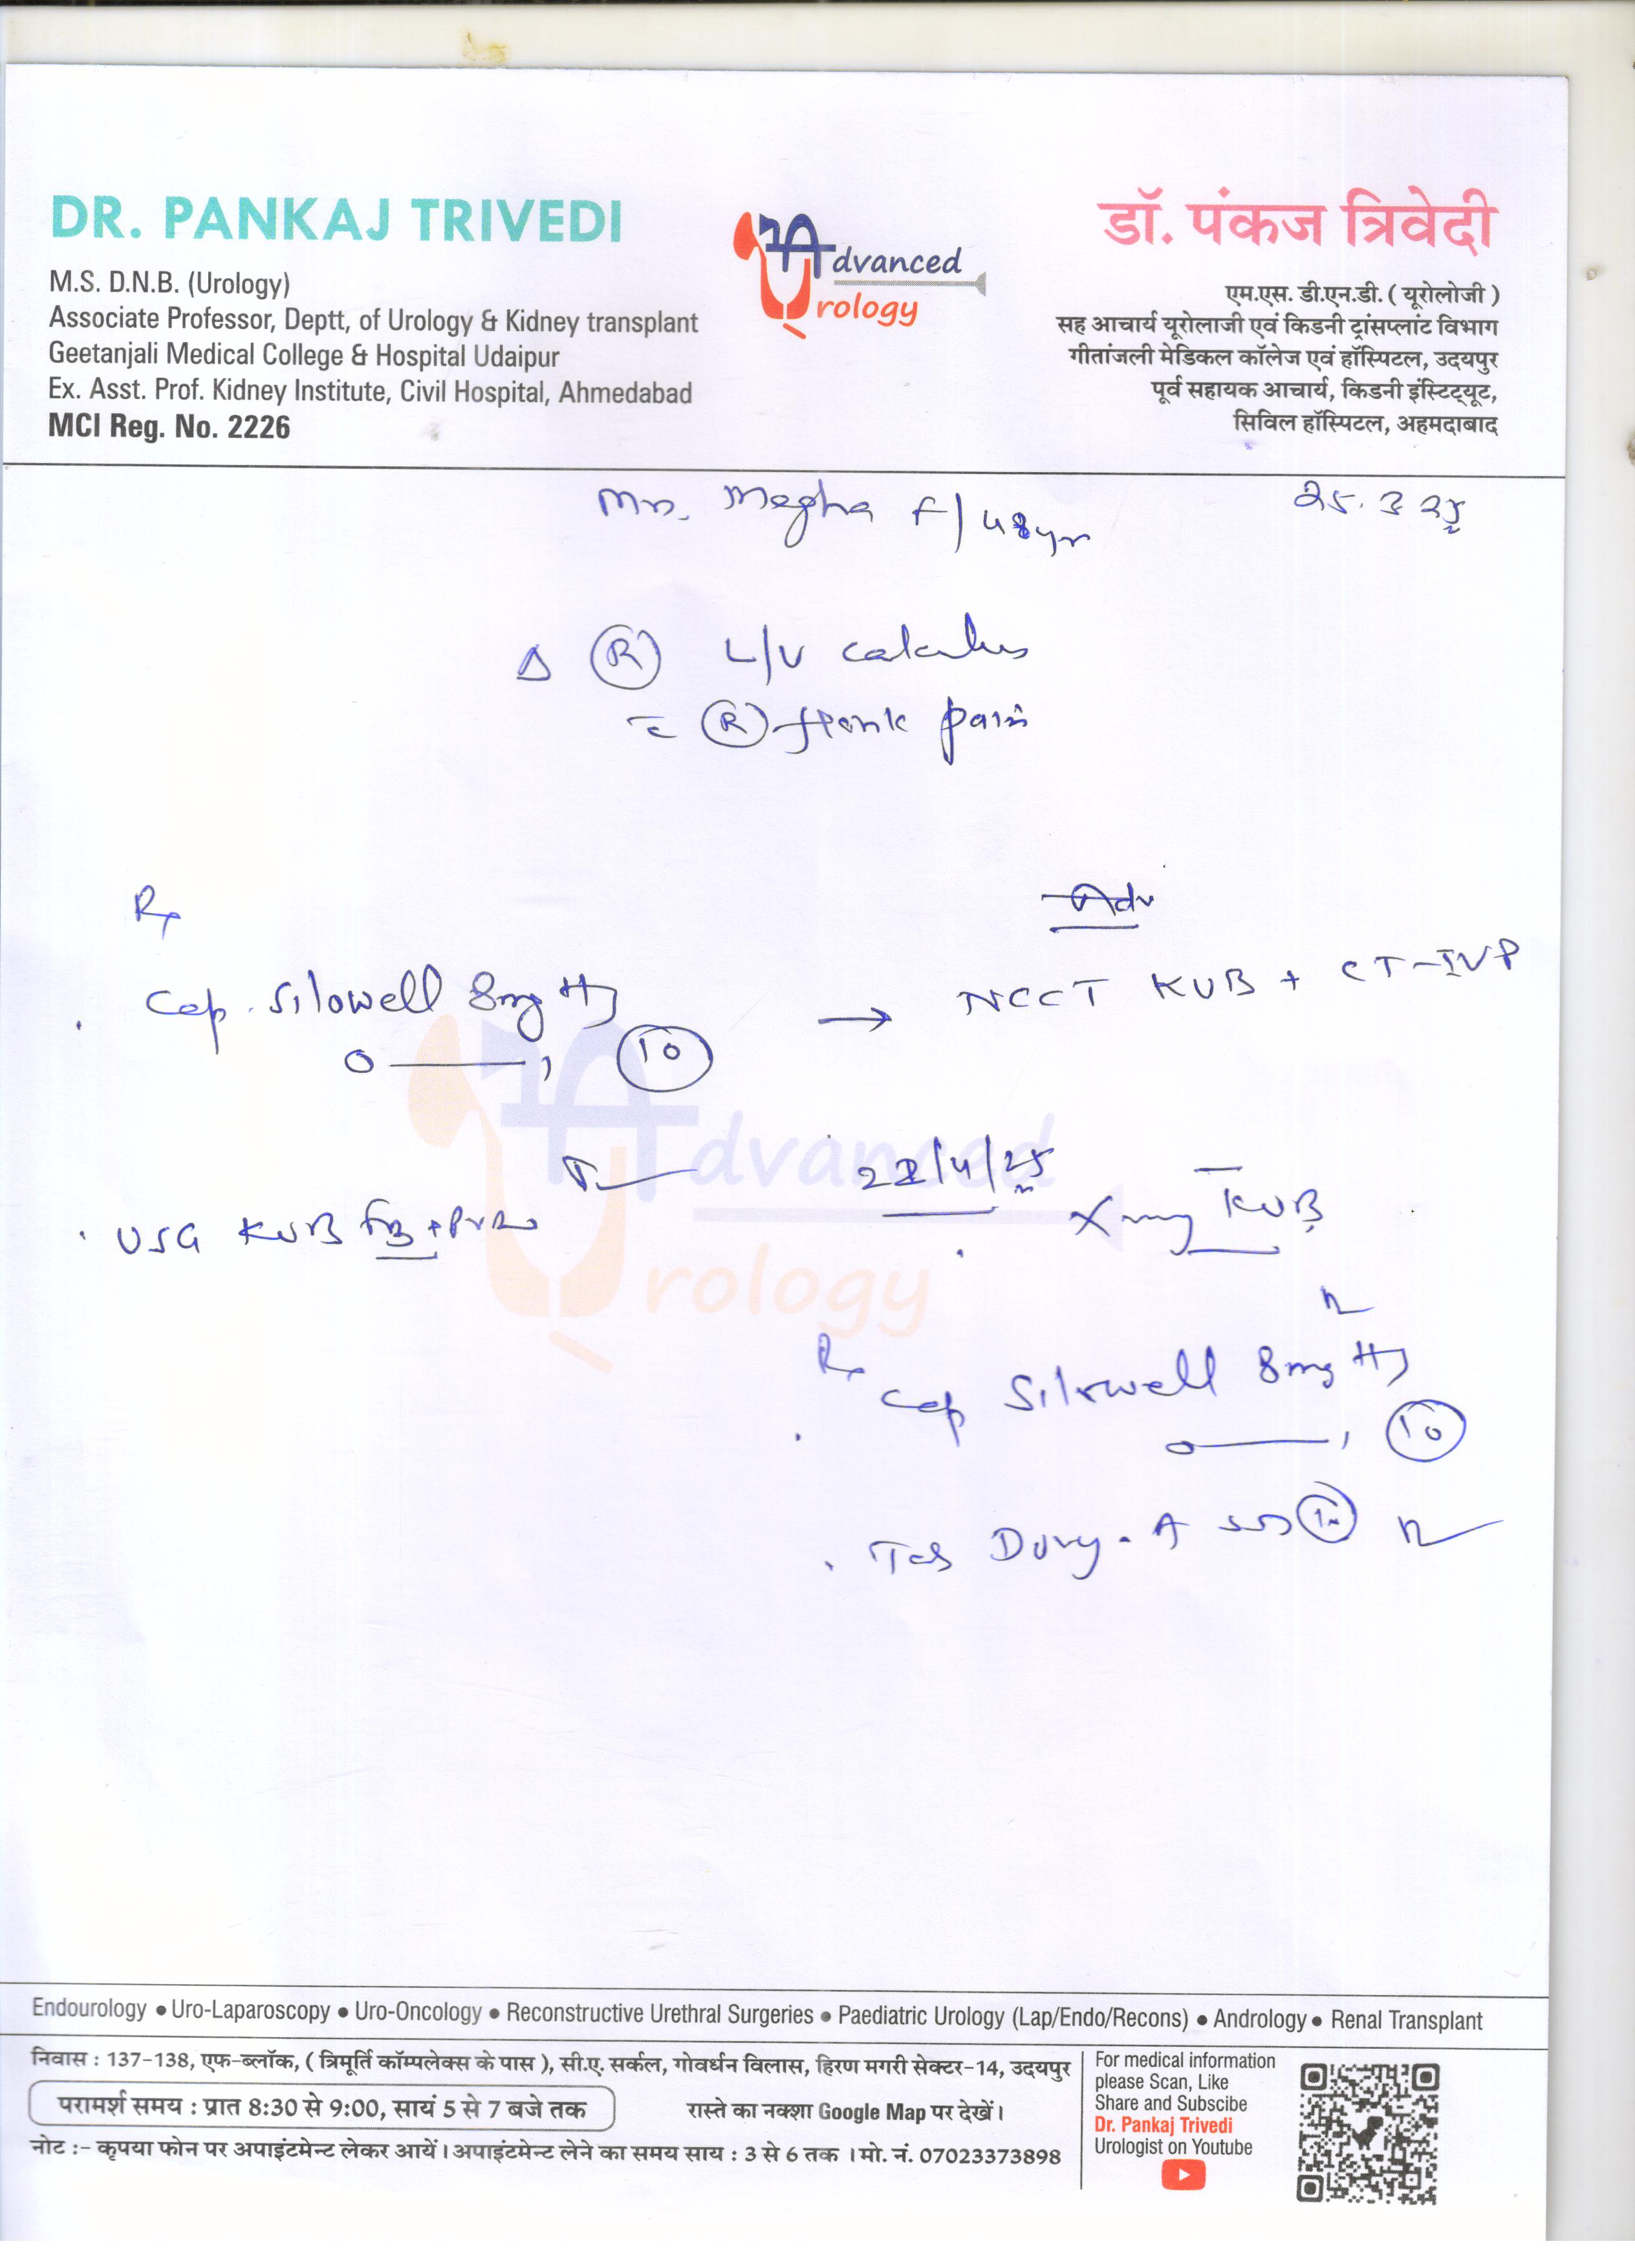 DR. PANKAJ TRIVEDI
M.S. D.N.B. (Urology)
Associate Professor, Deptt, of Urology & Kidney transplant
Geetanjali Medical College & Hospital Udaipur
Ex. Asst. Prof. Kidney Institute, Civil Hospital, Ahmedabad
MCI Reg. No. 2226
Advanced
Urology
डॉ. पंकज त्रिवेदी
एम.एस. डी.एन.डी. ( यूरोलोजी )
सह आचार्य यूरोलाजी एवं किडनी ट्रांसप्लांट विभाग
गीतांजली मेडिकल कॉलेज एवं हॉस्पिटल, उदयपुर
पूर्व सहायक आचार्य, किडनी इंस्टिट्यूट,
सिविल हॉस्पिटल, अहमदाबाद
Mrs. Megha F/48yr
25.3.25
Δ (R) L/U calculus
c̄ (R) flank pain
Rx
Cap. Silowell 8mg HS
0——1 (10)
USG KUB + PVR
Adv
→ NCCT KUB + CT-IVP
22/4/25
Xray KUB
Rx
Cap Silowell 8mg HS
0——1 (10)
Tab
Advanced
Urology
Endourology • Uro-Laparoscopy • Uro-Oncology • Reconstructive Urethral Surgeries • Paediatric Urology (Lap/Endo/Recons) • Andrology • Renal Transplant
निवास : 137-138, एफ-ब्लॉक, ( त्रिमूर्ति कॉम्पलेक्स के पास ), सी.ए. सर्कल, गोवर्धन विलास, हिरण मगरी सेक्टर-14, उदयपुर
परामर्श समय : प्रात 8:30 से 9:00, सायं 5 से 7 बजे तक
रास्ते का नक्शा Google Map पर देखें।
नोट :- कृपया फोन पर अपाइंटमेन्ट लेकर आयें। अपाइंटमेन्ट लेने का समय साय : 3 से 6 तक । मो. नं. 07023373898
For medical information
please Scan, Like
Share and Subscibe
Dr. Pankaj Trivedi
Urologist on Youtube